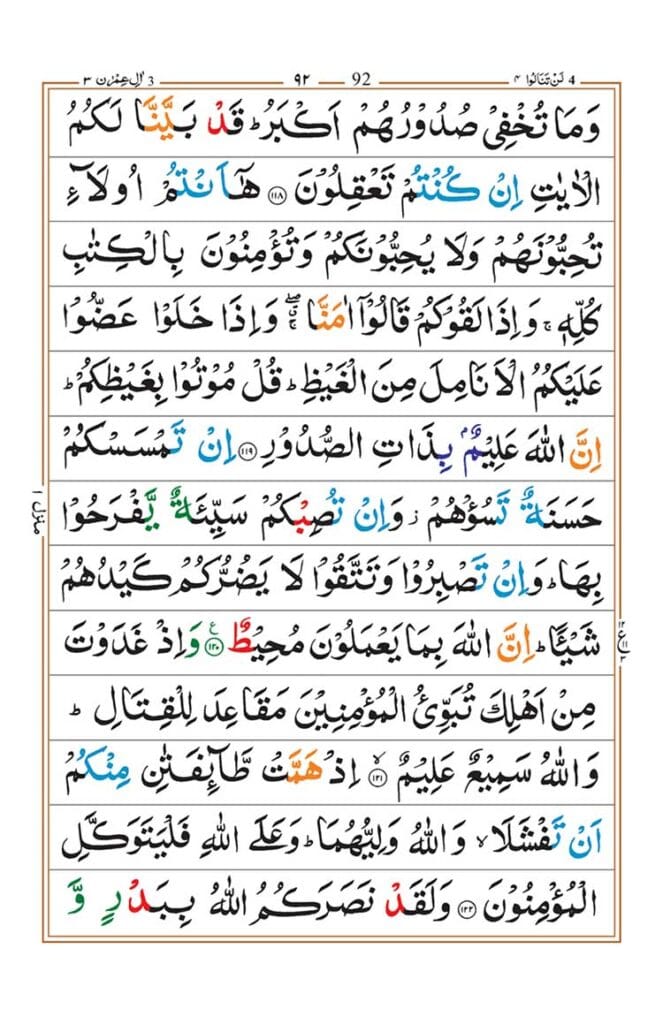 4 لَنْ تَنَالُوا ٤ 92 ٩٢ 3 اٰلِ عِمْرٰن ٣
وَمَا تُخْفِیْ صُدُوْرُهُمْ اَكْبَرُ ؕ قَدْ بَیَّنَّا لَكُمُ
الْاٰیٰتِ اِنْ كُنْتُمْ تَعْقِلُوْنَ ﴿۱۱۸﴾ هٰۤاَنْتُمْ اُولَآءِ
تُحِبُّوْنَهُمْ وَلَا یُحِبُّوْنَكُمْ وَتُؤْمِنُوْنَ بِالْكِتٰبِ
كُلِّهٖ ۚ وَاِذَا لَقُوْكُمْ قَالُوْۤا اٰمَنَّا ۖۚ وَاِذَا خَلَوْا عَضُّوْا
عَلَیْكُمُ الْاَنَامِلَ مِنَ الْغَیْظِ ؕ قُلْ مُوْتُوْا بِغَیْظِكُمْ ؕ
اِنَّ اللّٰهَ عَلِیْمٌۢ بِذَاتِ الصُّدُوْرِ ﴿۱۱۹﴾ اِنْ تَمْسَسْكُمْ
حَسَنَةٌ تَسُؤْهُمْ ؗ وَاِنْ تُصِبْكُمْ سَیِّئَةٌ یَّفْرَحُوْا
بِهَا ؕ وَاِنْ تَصْبِرُوْا وَتَتَّقُوْا لَا یَضُرُّكُمْ كَیْدُهُمْ
شَیْـًٔا ؕ اِنَّ اللّٰهَ بِمَا یَعْمَلُوْنَ مُحِیْطٌ ﴿۱۲۰﴾ ع وَاِذْ غَدَوْتَ
مِنْ اَهْلِكَ تُبَوِّئُ الْمُؤْمِنِیْنَ مَقَاعِدَ لِلْقِتَالِ ؕ
وَاللّٰهُ سَمِیْعٌ عَلِیْمٌ ﴿۱۲۱﴾ۙ اِذْ هَمَّتْ طَّآئِفَتٰنِ مِنْكُمْ
اَنْ تَفْشَلَا ۙ وَاللّٰهُ وَلِیُّهُمَا ؕ وَعَلَی اللّٰهِ فَلْیَتَوَكَّلِ
الْمُؤْمِنُوْنَ ﴿۱۲۲﴾ وَلَقَدْ نَصَرَكُمُ اللّٰهُ بِبَدْرٍ وَّ
منزل ۱